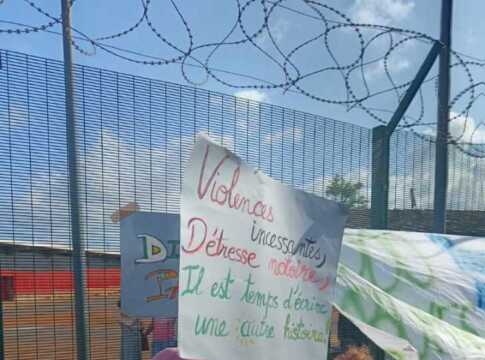 Violences
incessantes,
Détresse notoire,
Il est temps d'écrire
une autre histoire!
DI